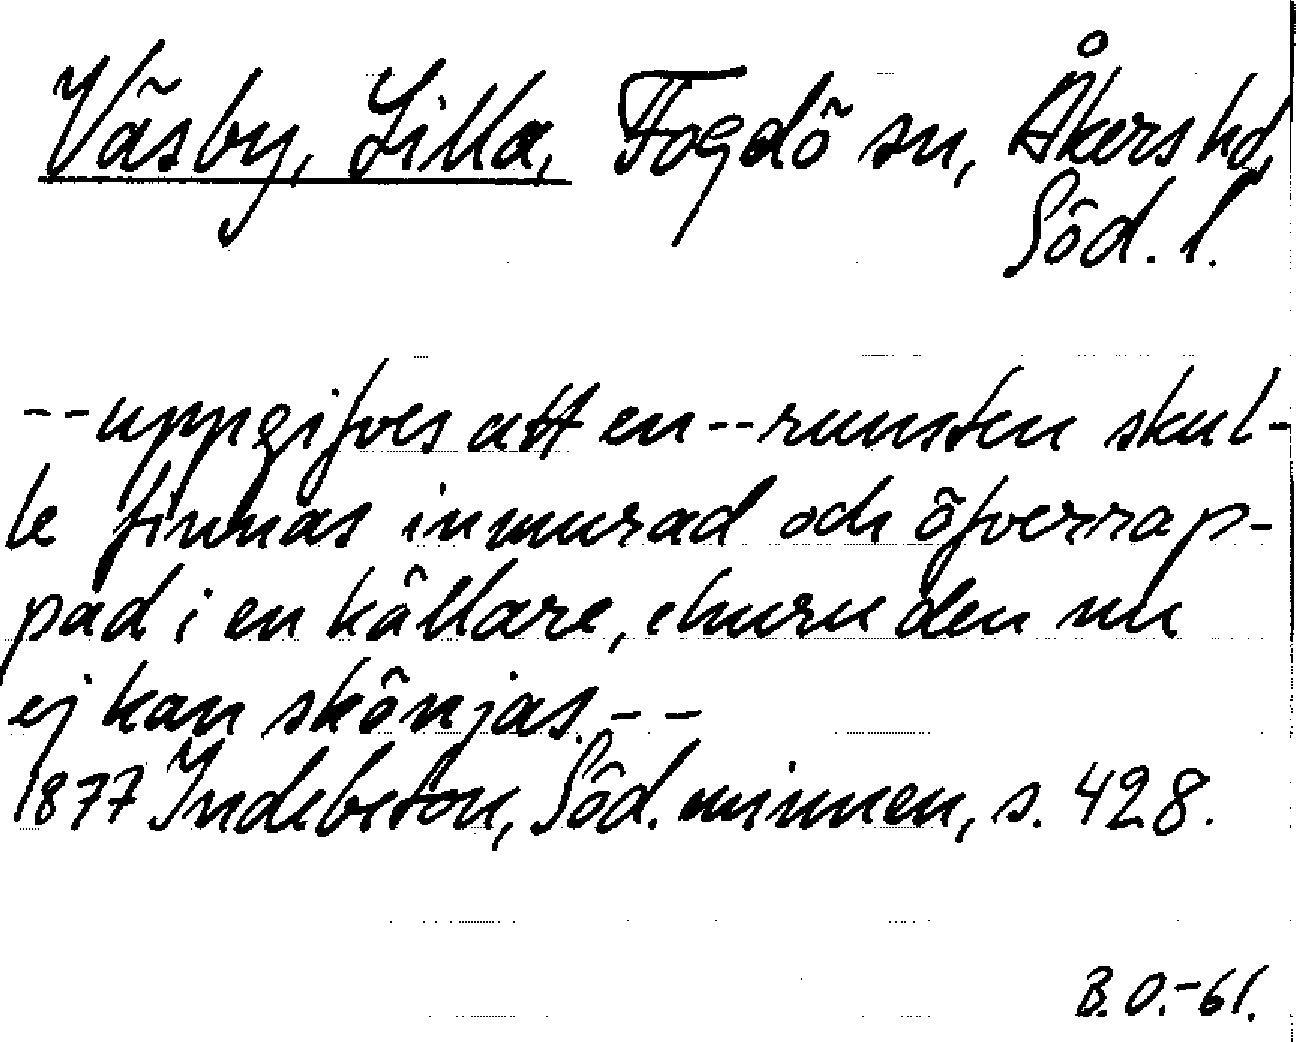 Väsby, Lilla, Fogdö sn, Åkers hd,
Söd. l.
--uppgifves att en--runsten skul-
le finnas inmurad och öfverrap-
pad i en källare, ehuru den nu
ej kan skönjas.--
1877 Indebetou, Söd. minnen, s. 428.
B.O.-61.